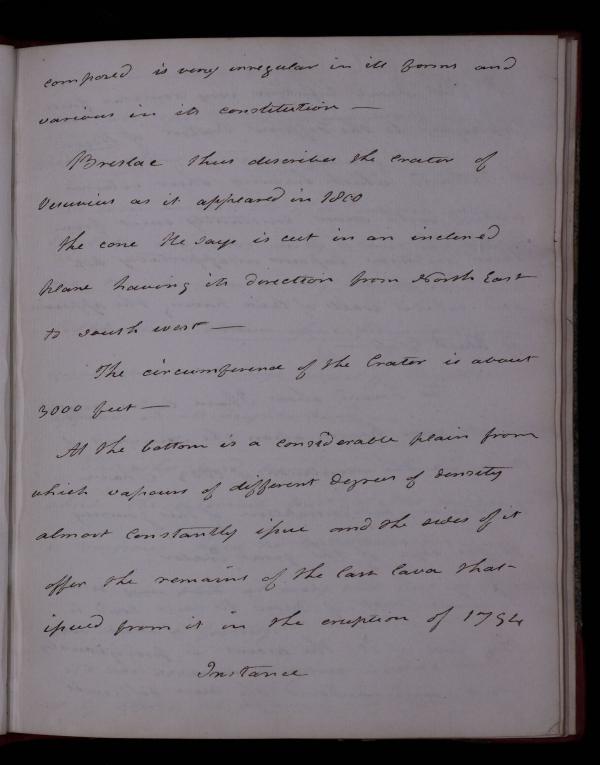 composed is very irregular in its forms and
various in its constitution —
Breislac thus describes the Crater of
Vesuvius as it appeared in 1800
The cone He says is cut in an inclined
plane having its direction from North East
to South west —
The circumference of the Crater is about
3000 feet —
At the bottom is a considerable plain from
which vapours of different degrees of density
almost constantly issue and the sides of it
offer the remains of the last lava that
issued from it in the eruption of 1794
Instance